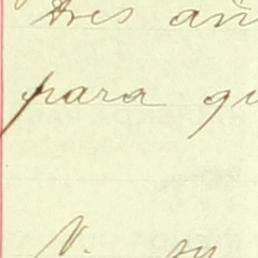 tres añ
para qu
V.